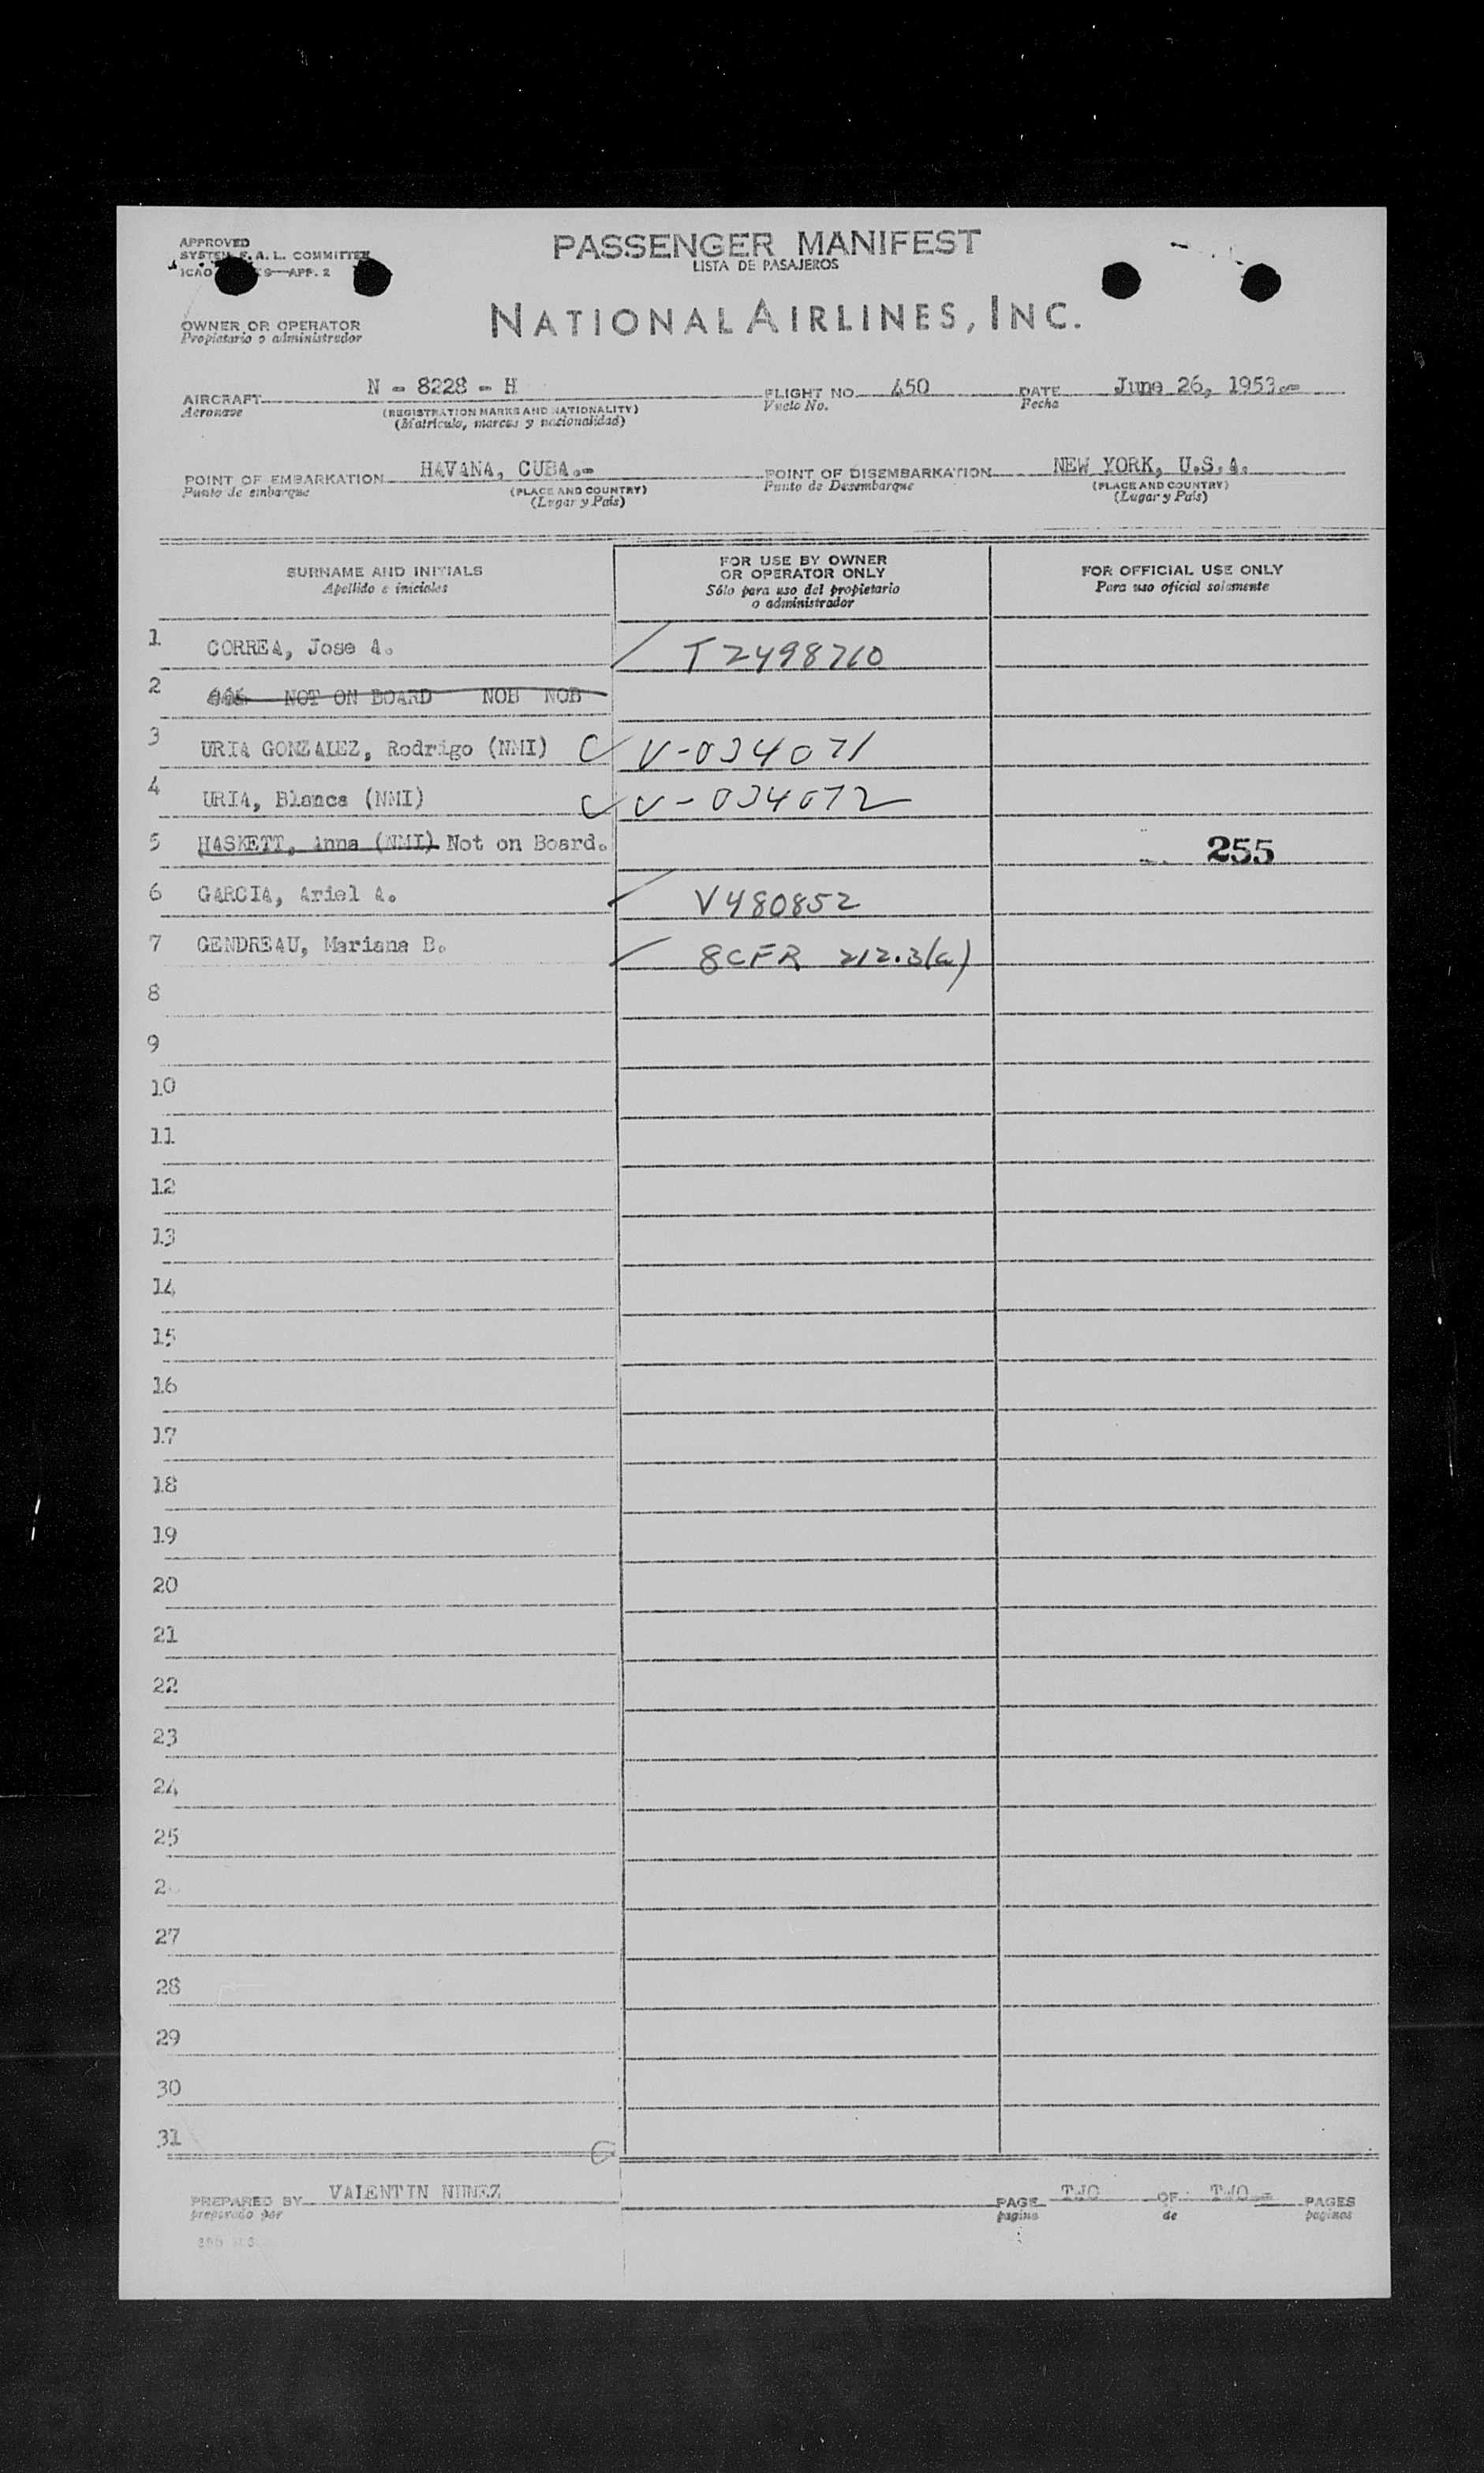 APPROVED
SYSTEM F. A. L. COMMITTEE
ICAO 9—APP. 2
PASSENGER MANIFEST
LISTA DE PASAJEROS
OWNER OR OPERATOR
Propietario o administrador
NATIONAL AIRLINES, INC.
AIRCRAFT N - 8228 - H FLIGHT NO. 450 DATE June 26, 1953.-
Aeronave (REGISTRATION MARKS AND NATIONALITY) Vuelo No. Fecha
(Matricula, marcas y nacionalidad)
POINT OF EMBARKATION HAVANA, CUBA.- POINT OF DISEMBARKATION NEW YORK, U.S.A.
Punto de embarque (PLACE AND COUNTRY) Punto de Desembarque (PLACE AND COUNTRY)
(Lugar y País) (Lugar y País)
SURNAME AND INITIALS
Apellido e iniciales
FOR USE BY OWNER
OR OPERATOR ONLY
Sólo para uso del propietario
o administrador
FOR OFFICIAL USE ONLY
Para uso oficial solamente
1 CORREA, Jose A. T2498710
2 NOT ON BOARD NOB NOB
3 URIA GONZALEZ, Rodrigo (NMI) C V-034071
4 URIA, Blanca (NMI) C V-034072
5 HASKETT, Anna (NMI) Not on Board. 255
6 GARCIA, Ariel A. V480852
7 GENDREAU, Mariana B. 8CFR 212.3(a)
8
9
10
11
12
13
14
15
16
17
18
19
20
21
22
23
24
25
2
27
28
29
30
31
PREPARED BY VALENTIN NUNEZ PAGE TWO OF TWO.- PAGES
preparado por pagina de paginas